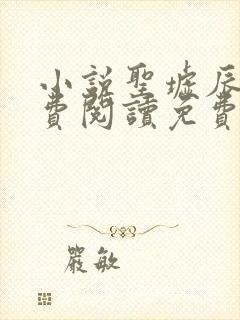 小說聖墟辰
費閱讀免費
嚴敏